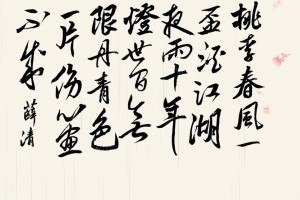 桃李春風一
盃酒江湖
夜雨十年
燈世間無
限丹青色
一片傷心畫
不成
薛清